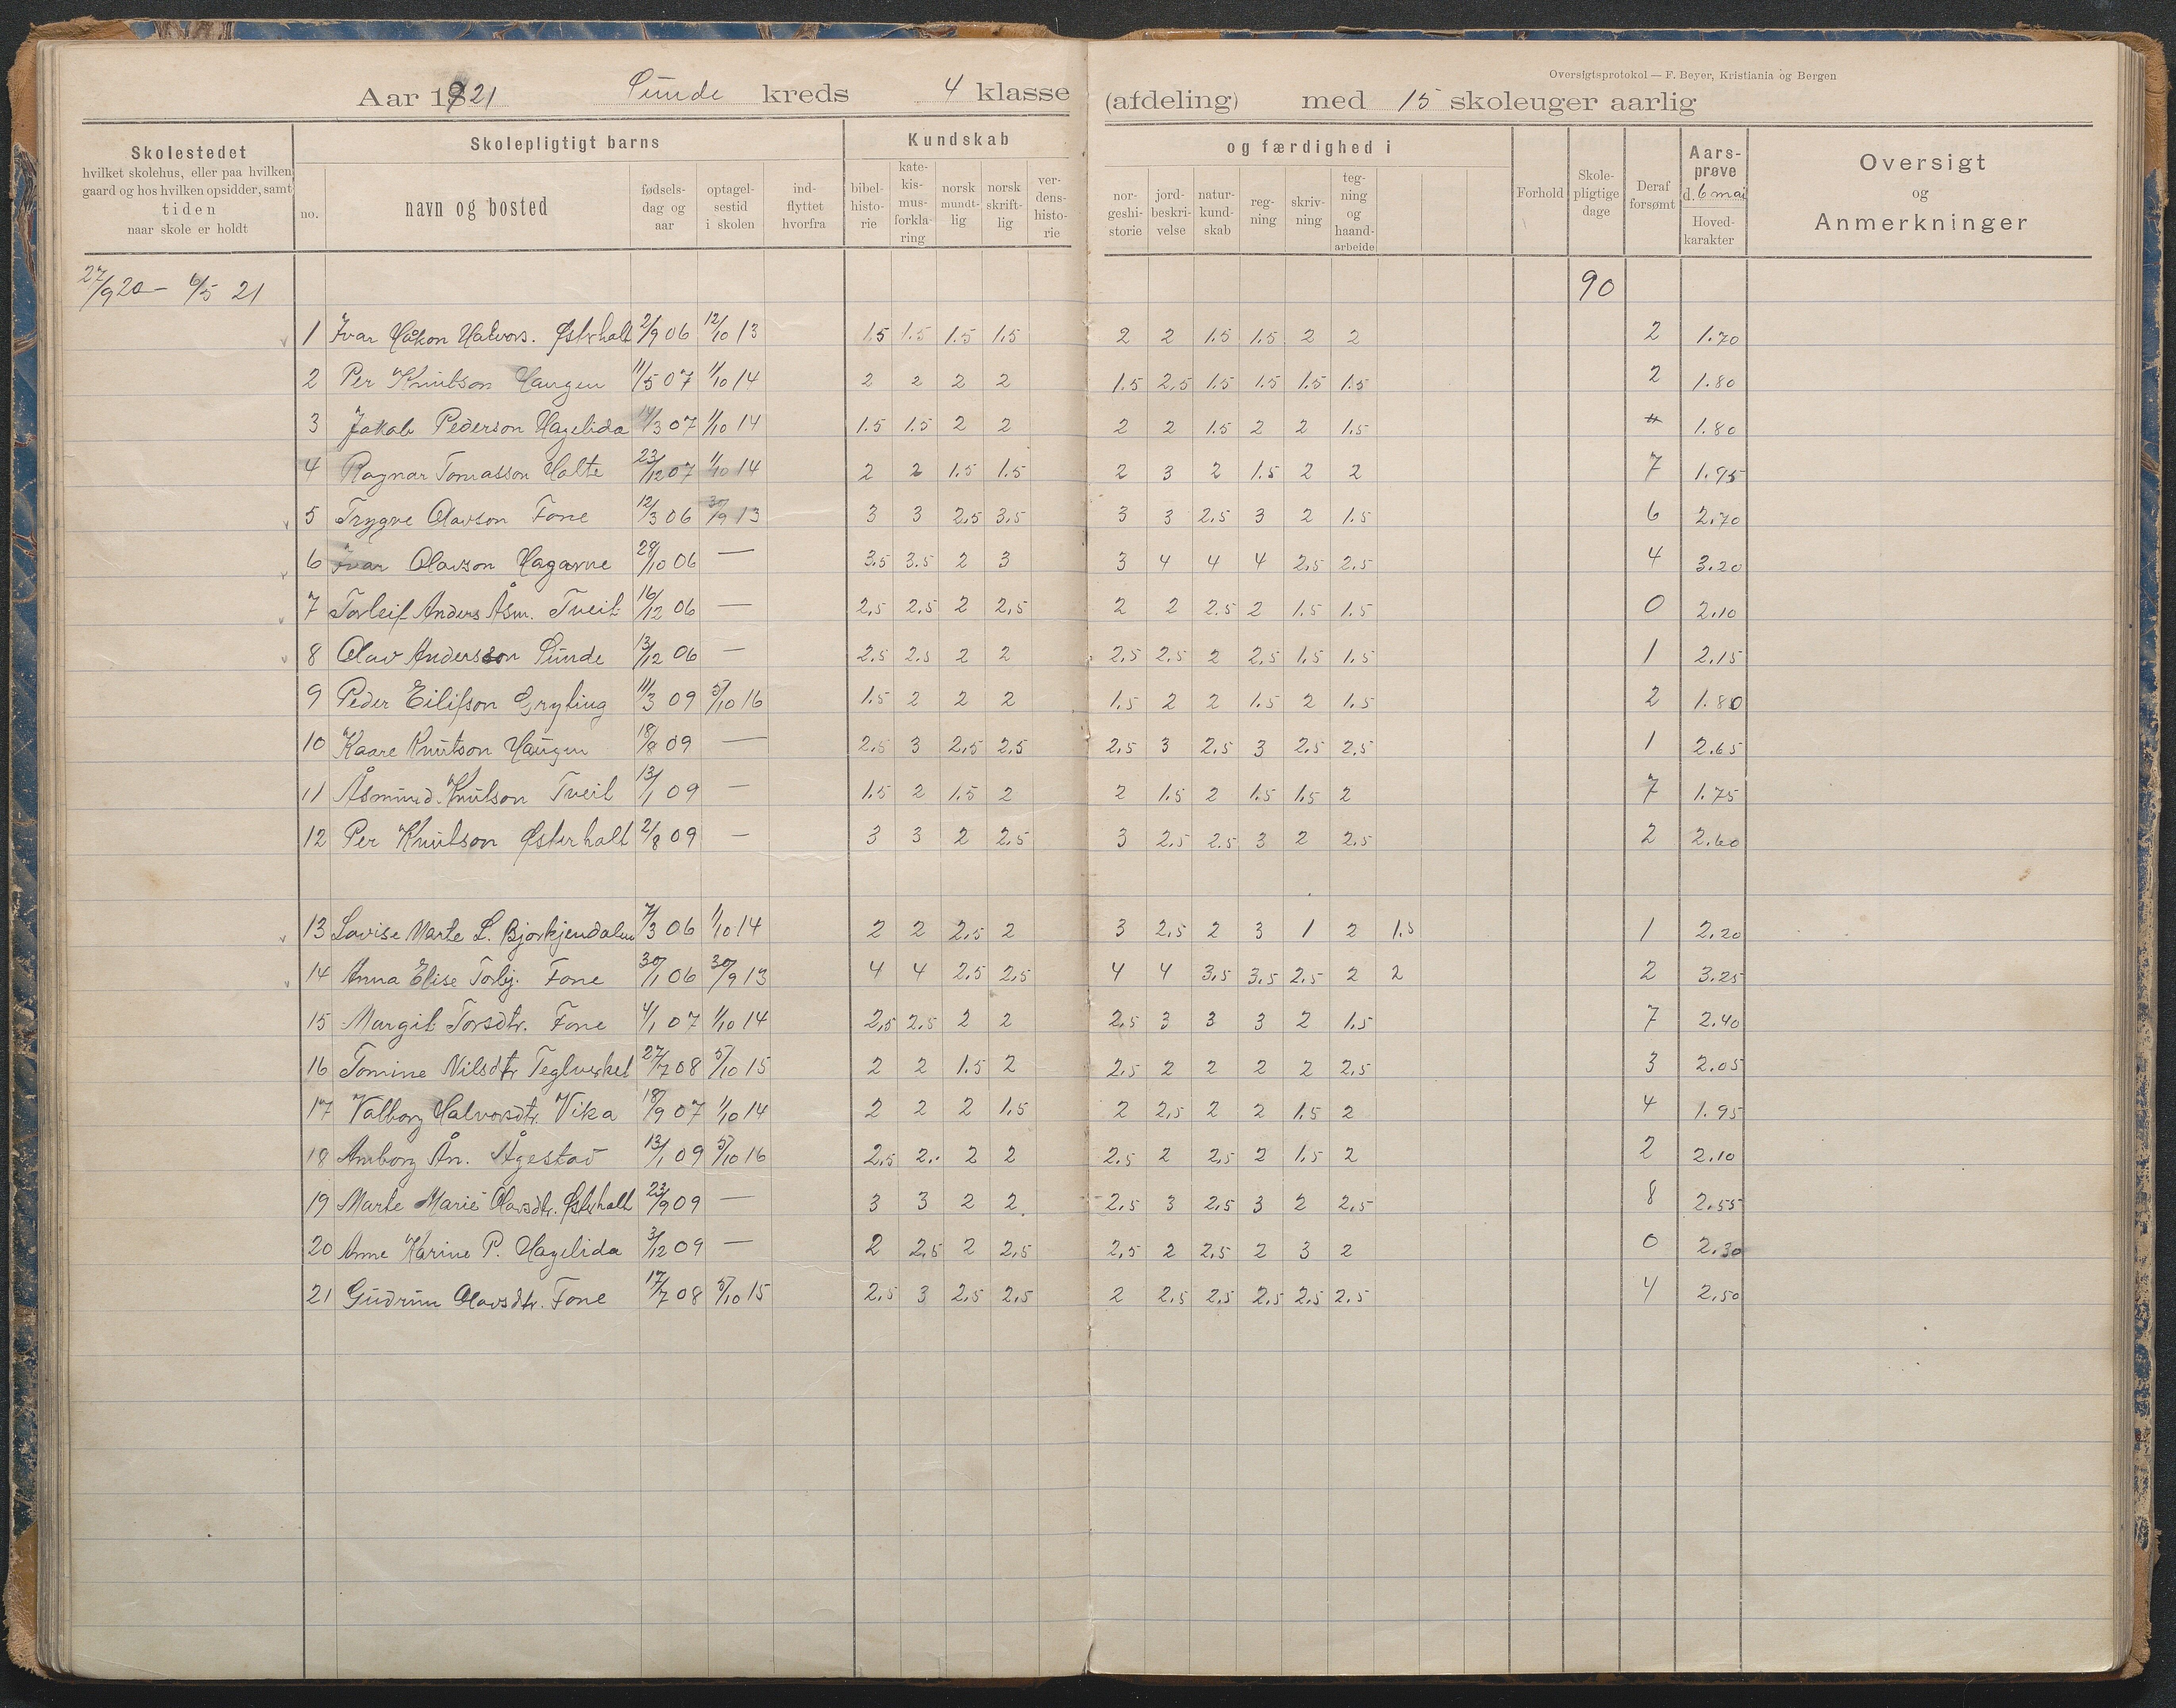 Oversigtsprotokol — F. Beyer, Kristiania og Bergen
Aar 1921 Sunde kreds 4 klasse (afdeling) med 15 skoleuger aarlig
Skolestedet
hvilket skolehus, eller paa hvilken
gaard og hos hvilken opsidder, samt
tiden
naar skole er holdt
Skolepligtigt barns
no.
navn og bosted
fødsels-
dag og
aar
optagel-
sestid
i skolen
ind-
flyttet
hvorfra
Kundskab
bibel-
histo-
rie
kate-
kis-
mus-
forkla-
ring
norsk
mundt-
lig
norsk
skrift-
lig
ver-
dens-
histo-
rie
og færdighed i
nor-
geshi-
storie
jord-
beskri-
velse
natur-
kund-
skab
reg-
ning
skriv-
ning
teg-
ning
og
haand-
arbeide
Forhold
Skole-
pligtige
dage
Deraf
forsømt
Aars-
prøve
d. 6 mai
Hoved-
karakter
Oversigt
og
Anmerkninger
27/9 20 – 6/5 21 90
1 Ivar Håkon Halvors. Østerhalt 2/9 06 12/10 13 1.5 1.5 1.5 1.5 2 2 1.5 1.5 2 2 2 1.70
2 Per Knutson Haugen 11/5 07 1/10 14 2 2 2 2 1.5 2.5 1.5 1.5 1.5 1.5 2 1.80
3 Jakob Pederson Hagelida 14/3 07 1/10 14 1.5 1.5 2 2 2 2 1.5 2 2 1.5 1.80
4 Ragnar Tomasson Holte 23/12 07 1/10 14 2 2 1.5 1.5 2 3 2 1.5 2 2 7 1.95
5 Trygve Olavson Fone 12/3 06 30/9 13 3 3 2.5 3.5 3 3 2.5 3 2 1.5 6 2.70
6 Ivar Olavson Hagarne 28/10 06 — 3.5 3.5 2 3 3 4 4 4 2.5 2.5 4 3.20
7 Torleif Anders Åsm. Tveit 16/12 06 — 2.5 2.5 2 2.5 2 2 2.5 2 1.5 1.5 0 2.10
8 Olav Andersson Sunde 13/12 06 — 2.5 2.5 2 2 2.5 2.5 2 2.5 1.5 1.5 1 2.15
9 Peder Eilifson Gryting 11/3 09 5/10 16 1.5 2 2 2 1.5 2 2 1.5 2 1.5 2 1.80
10 Kaare Knutson Haugen 18/8 09 — 2.5 3 2.5 2.5 2.5 3 2.5 3 2.5 2.5 1 2.65
11 Åsmund Knutson Tveit 13/1 09 — 1.5 2 1.5 2 2 1.5 2 1.5 1.5 2 7 1.75
12 Per Knutson Østerhalt 2/8 09 — 3 3 2 2.5 3 2.5 2.5 3 2 2.5 2 2.60
13 Lovise Marte L. Bjorkjendalen 7/3 06 1/10 14 2 2 2.5 2 3 2.5 2 3 1 2 1.5 1 2.20
14 Anna Elise Torbj. Fone 30/1 06 30/9 13 4 4 2.5 2.5 4 4 3.5 3.5 2.5 2 2 2 3.25
15 Margit Torsdtr. Fone 4/1 07 1/10 14 2.5 2.5 2 2 2.5 3 3 3 2 1.5 7 2.40
16 Tomine Nilsdtr Teglverket 27/7 08 5/10 15 2 2 1.5 2 2.5 2 2 2 2 2.5 3 2.05
17 Valborg Halvorsdtr. Vika 18/9 07 1/10 14 2 2 2 1.5 2 2.5 2 2 1.5 2 4 1.95
18 Amborg Ån. Ågestad 13/1 09 5/10 16 2.5 2. 2 2 2.5 2 2.5 2 1.5 2 2 2.10
19 Marte Marie Olavsdtr. Østerhalt 23/9 09 — 3 3 2 2 2.5 3 2.5 3 2 2.5 8 2.55
20 Anne Karine P. Hagelida 3/12 09 — 2 2.5 2 2.5 2.5 2 2.5 2 3 2 0 2.30
21 Gudrun Olavsdtr. Fone 17/7 08 5/10 15 2.5 3 2.5 2.5 2 2.5 2.5 2.5 2.5 2.5 4 2.50